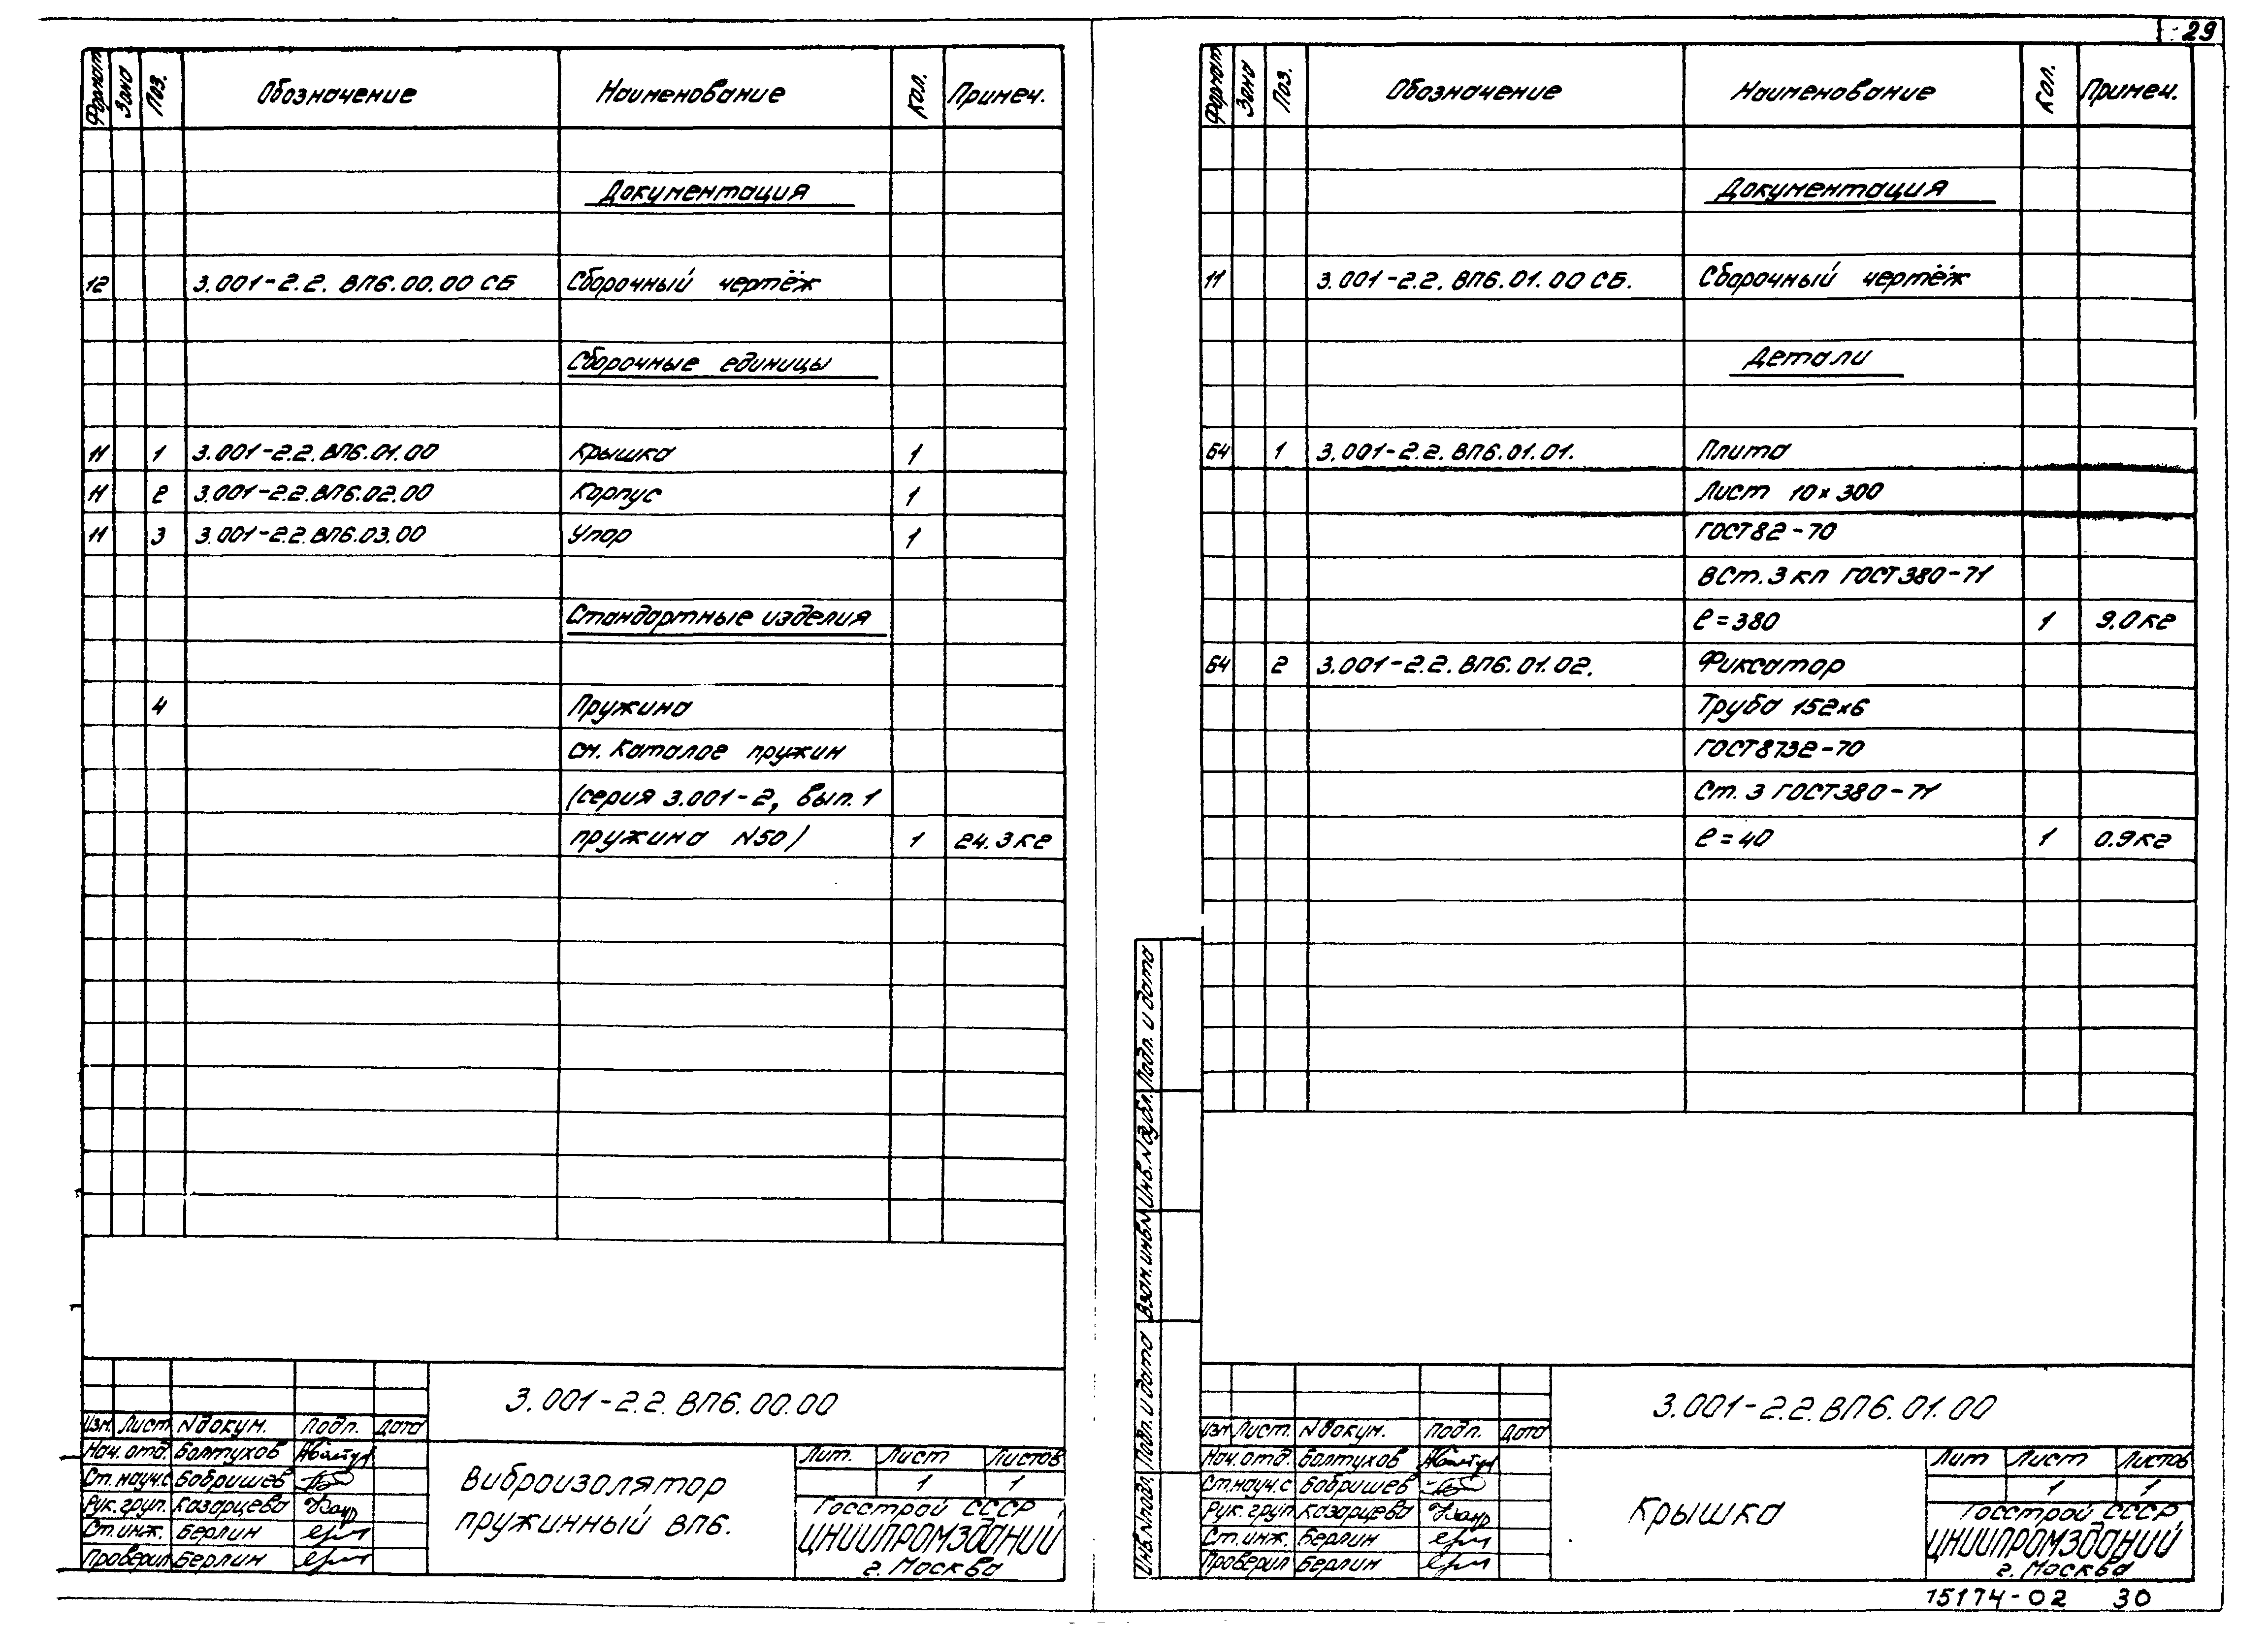 29
Формат Зона Поз. Обозначение Наименование Кол. Примеч.
Документация
12 3.001-2.2. ВП6.00.00 СБ Сборочный чертёж
Сборочные единицы
11 1 3.001-2.2.ВП6.01.00 Крышка 1
11 2 3.001-2.2.ВП6.02.00 Корпус 1
11 3 3.001-2.2.ВП6.03.00 Упор 1
Стандартные изделия
4 Пружина
см. Каталог пружин
(серия 3.001-2, вып. 1
пружина N50) 1 24.3кг
3.001-2.2.ВП6.00.00
Изм. Лист Nдокум. Подп. Дата
Нач. отд. Болтухов
Ст.науч.с Бобришев
Рук. груп. Казарцева
Ст.инж. Берлин
Проверил Берлин
Виброизолятор
пружинный ВП6.
Лит. Лист Листов
1 1
Госстрой СССР
ЦНИИПРОМЗДАНИЙ
г. Москва
Формат Зона Поз. Обозначение Наименование Кол. Примеч.
Документация
11 3.001-2.2. ВП6.01.00 СБ. Сборочный чертёж
Детали
БЧ 1 3.001-2.2. ВП6.01.01. Плита
Лист 10х300
ГОСТ82-70
ВСт.3 кп ГОСТ380-71
ℓ=380 1 9.0кг
БЧ 2 3.001-2.2. ВП6.01.02. Фиксатор
Труба 152х6
ГОСТ8732-70
Ст. 3 ГОСТ380-71
ℓ=40 1 0.9кг
Инв.Nподл. Подп. и дата Взам.инвN Инв.Nдубл. Подп. и дата
3.001-2.2.ВП6.01.00
Изм Лист. Nдокум. Подп. Дата
Нач. отд. Болтухов
Ст.науч.с Бобришев
Рук. груп. Казарцева
Ст.инж. Берлин
Проверил Берлин
Крышка
Лит Лист Листов
1 1
Госстрой СССР
ЦНИИПРОМЗДАНИЙ
г. Москва
15174-02 30